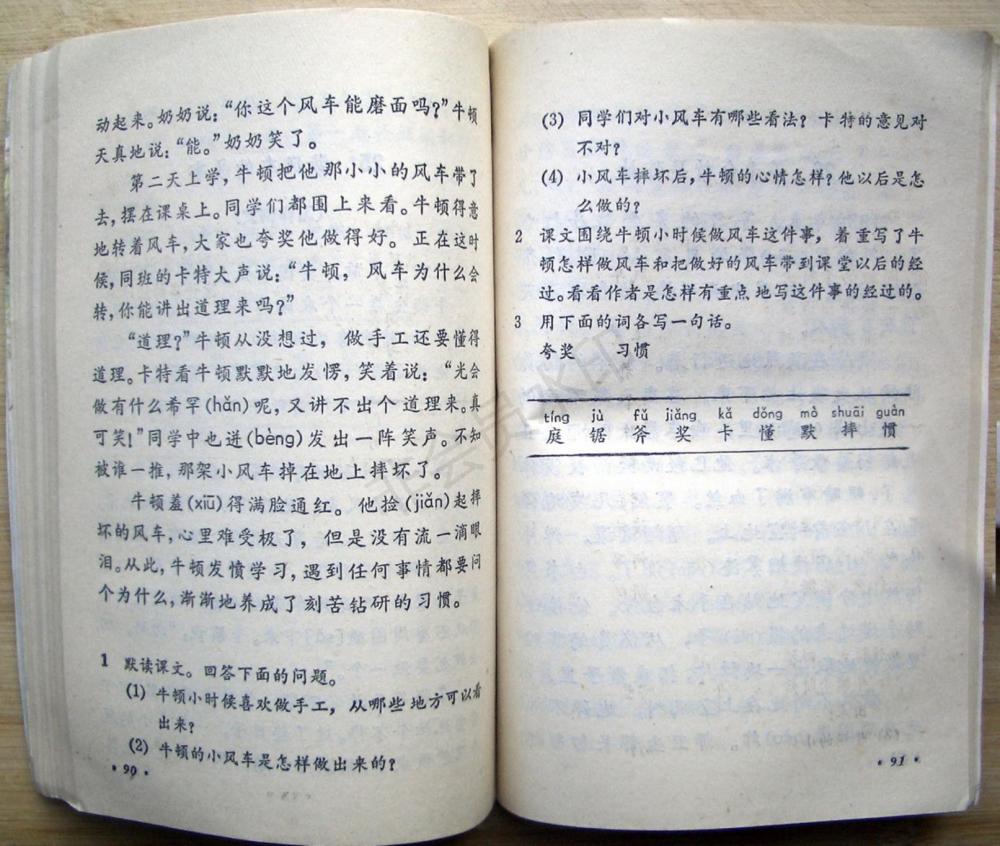 动起来。奶奶说：“你这个风车能磨面吗？”牛顿
天真地说：“能。”奶奶笑了。
第二天上学，牛顿把他那小小的风车带了
去，摆在课桌上。同学们都围上来看。牛顿得意
地转着风车，大家也夸奖他做得好。正在这时
候，同班的卡特大声说：“牛顿，风车为什么会
转，你能讲出道理来吗？”
“道理？”牛顿从没想过，做手工还要懂得
道理。卡特看牛顿默默地发愣，笑着说：“光会
做有什么希罕(hǎn)呢，又讲不出个道理来。真
可笑！”同学中也迸(bèng)发出一阵笑声。不知
被谁一推，那架小风车掉在地上摔坏了。
牛顿羞(xiū)得满脸通红。他捡(jiǎn)起摔
坏的风车，心里难受极了，但是没有流一滴眼
泪。从此，牛顿发愤学习，遇到任何事情都要问
个为什么，渐渐地养成了刻苦钻研的习惯。
1 默读课文。回答下面的问题。
(1) 牛顿小时候喜欢做手工，从哪些地方可以看
出来？
(2) 牛顿的小风车是怎样做出来的？
·90·
(3) 同学们对小风车有哪些看法？卡特的意见对
不对？
(4) 小风车摔坏后，牛顿的心情怎样？他以后是怎
么做的？
2 课文围绕牛顿小时候做风车这件事，着重写了牛
顿怎样做风车和把做好的风车带到课堂以后的经
过。看看作者是怎样有重点地写这件事的经过的。
3 用下面的词各写一句话。
夸奖 习惯
tíng jù fǔ jiǎng kǎ dǒng mò shuāi guàn
庭 锯 斧 奖 卡 懂 默 摔 惯
·91·